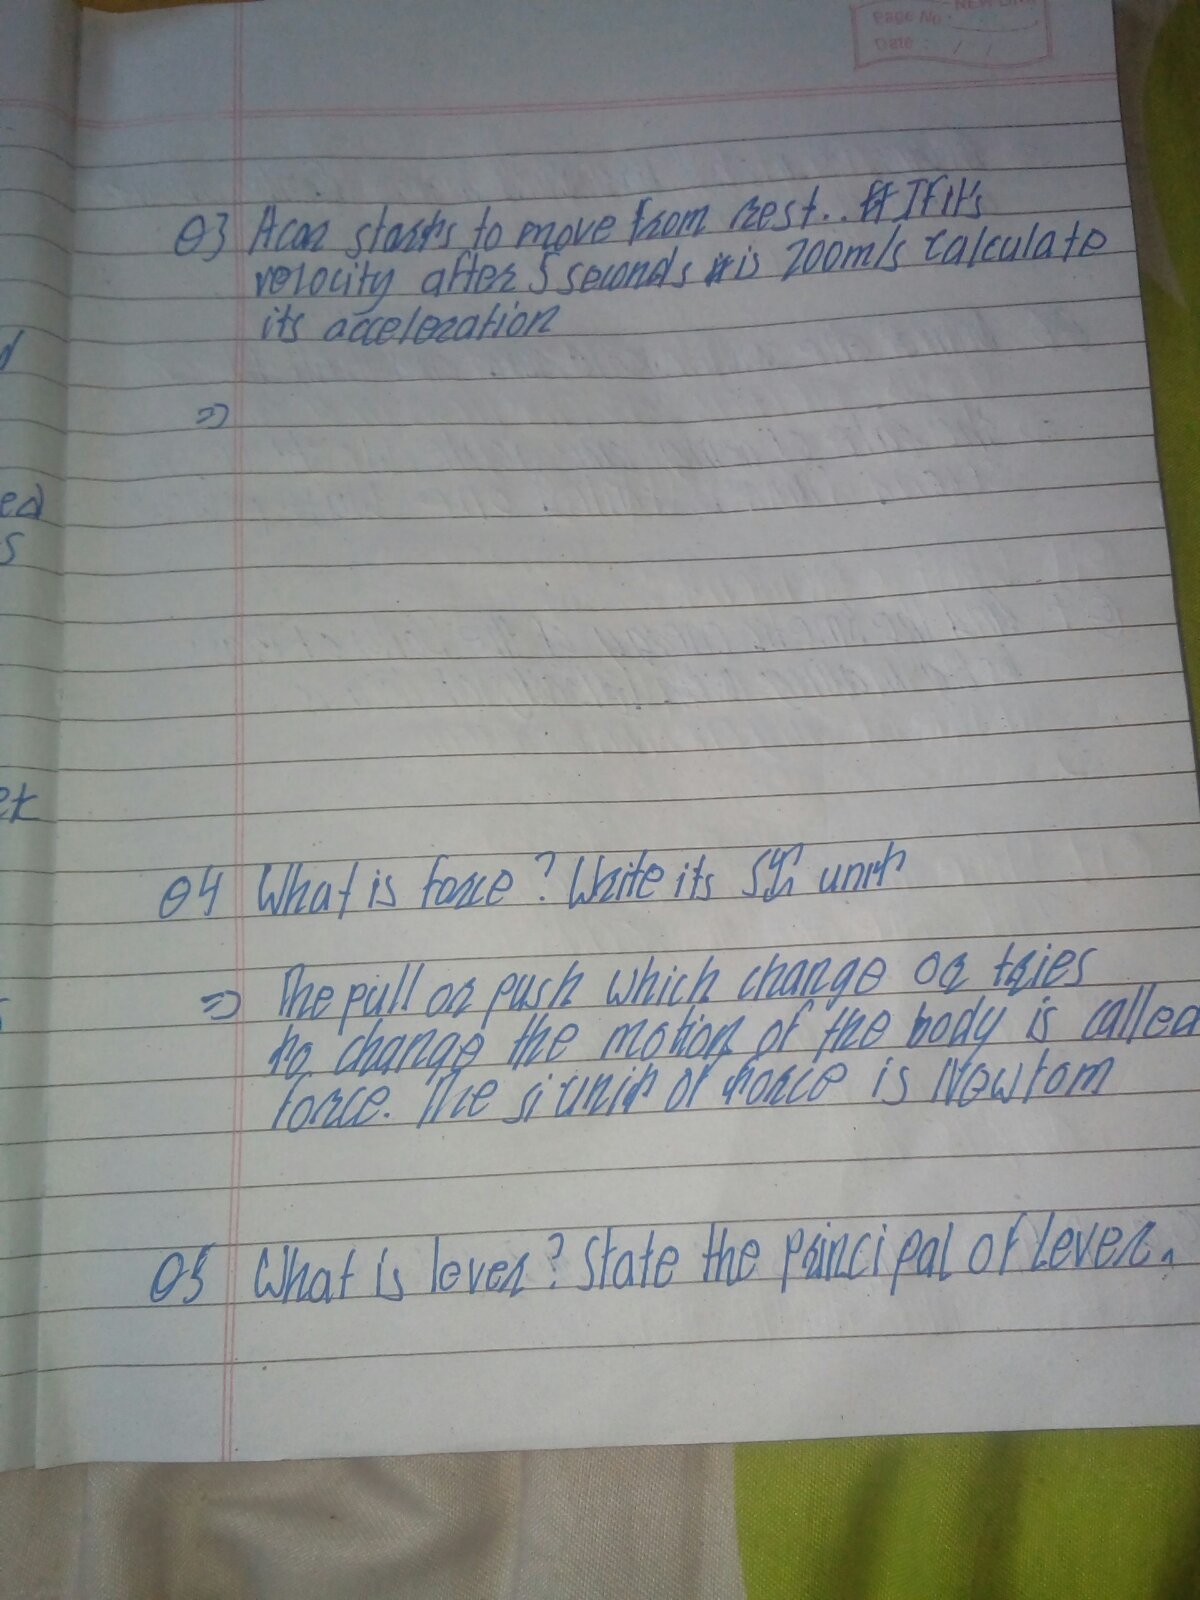 Page No.
Date : / /
Q3 A car starts to move from rest.. If it's
velocity after 5 seconds is 200m/s calculate
its acceleration
=>
d
ed
s
et
Q4 What is force? Write its unit
=> The pull or push which change or tries
to change the motion of the body is called
force. The si unit of force is Newtom
Q5 What is lever? State the principal of Lever.